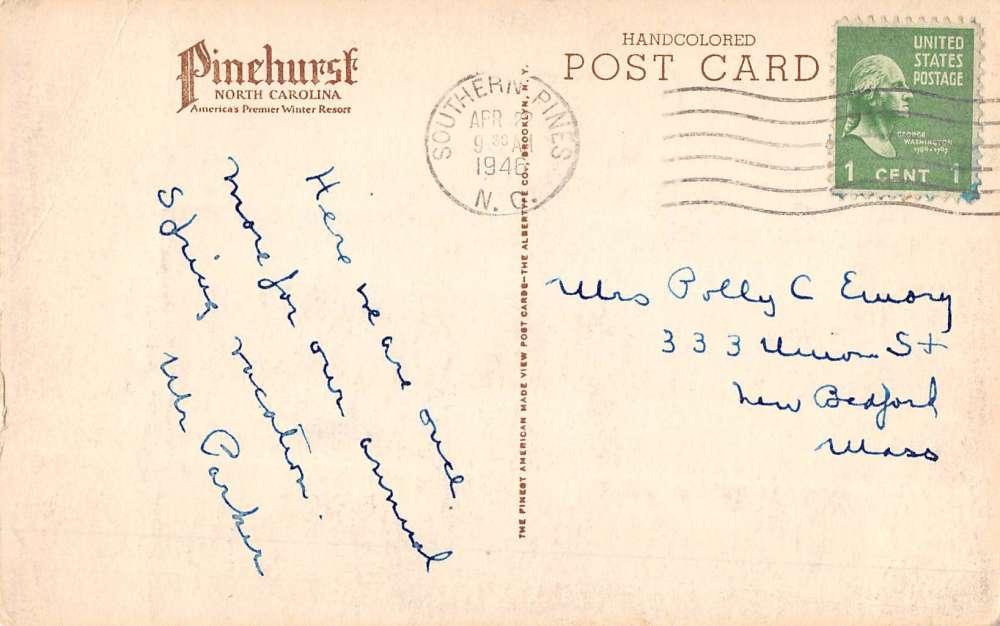 Pinehurst
NORTH CAROLINA
America's Premier Winter Resort
HANDCOLORED
POST CARD
SOUTHERN PINES
APR
9 30 AM
1946
N. C.
UNITED
STATES
POSTAGE
GEORGE
WASHINGTON
1789-1797
1 CENT 1
THE FINEST AMERICAN MADE VIEW POST CARDS—THE ALBERTYPE CO., BROOKLYN, N.Y.
Here we are once
more for our annual
spring vacation.
Mr Parker
Mrs Polly C Emory
333 Union St
New Bedford
Mass